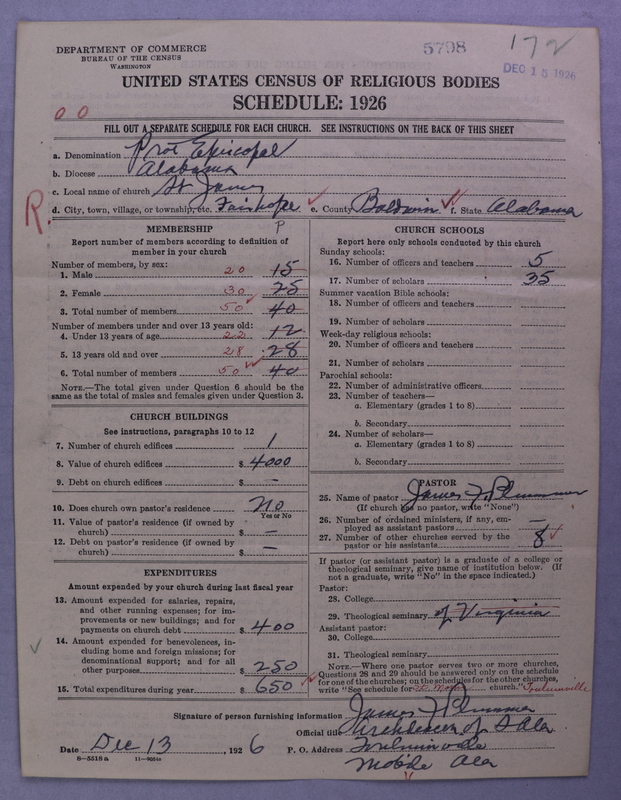 DEPARTMENT OF COMMERCE
BUREAU OF THE CENSUS
WASHINGTON
5798
172
DEC 15 1926
UNITED STATES CENSUS OF RELIGIOUS BODIES
SCHEDULE: 1926
0 0
FILL OUT A SEPARATE SCHEDULE FOR EACH CHURCH. SEE INSTRUCTIONS ON THE BACK OF THIS SHEET
a. Denomination Prot Episcopal
b. Diocese Alabama
c. Local name of church St James
d. City, town, village, or township, etc. Fairhope e. County Baldwin f. State Alabama
R.
MEMBERSHIP P
Report number of members according to definition of
member in your church
Number of members, by sex:
1. Male 20 15
2. Female 30 25
3. Total number of members 50 40
Number of members under and over 13 years old:
4. Under 13 years of age 22 12
5. 13 years old and over 28 28
6. Total number of members 50 40
NOTE.—The total given under Question 6 should be the
same as the total of males and females given under Question 3.
CHURCH BUILDINGS
See instructions, paragraphs 10 to 12
7. Number of church edifices 1
8. Value of church edifices $ 4000
9. Debt on church edifices $ —
10. Does church own pastor's residence No
Yes or No
11. Value of pastor's residence (if owned by
church) $ —
12. Debt on pastor's residence (if owned by
church) $ —
EXPENDITURES
Amount expended by your church during last fiscal year
13. Amount expended for salaries, repairs,
and other running expenses; for im-
provements or new buildings; and for
payments on church debt $ 400
14. Amount expended for benevolences, in-
cluding home and foreign missions; for
denominational support; and for all
other purposes $ 250
15. Total expenditures during year $ 650
CHURCH SCHOOLS
Report here only schools conducted by this church
Sunday schools:
16. Number of officers and teachers 5
17. Number of scholars 35
Summer vacation Bible schools:
18. Number of officers and teachers
19. Number of scholars
Week-day religious schools:
20. Number of officers and teachers
21. Number of scholars
Parochial schools:
22. Number of administrative officers
23. Number of teachers—
a. Elementary (grades 1 to 8)
b. Secondary
24. Number of scholars—
a. Elementary (grades 1 to 8)
b. Secondary
PASTOR
25. Name of pastor James F. Plummer
(If church has no pastor, write "None")
26. Number of ordained ministers, if any, em-
ployed as assistant pastors —
27. Number of other churches served by the
pastor or his assistants 8
If pastor (or assistant pastor) is a graduate of a college or
theological seminary, give name of institution below. (If
not a graduate, write "No" in the space indicated.)
Pastor:
28. College
29. Theological seminary of Virginia
Assistant pastor:
30. College
31. Theological seminary
NOTE.—Where one pastor serves two or more churches,
Questions 26 and 29 should be answered only on the schedule
for one of the churches; on the schedules for the other churches,
write "See schedule for church." Toulminville
Signature of person furnishing information James F Plummer
Official title Archdeacon of S Ala
Date Dec 13, 1926 P. O. Address Toulminville
Mobile Ala
8—5518 a